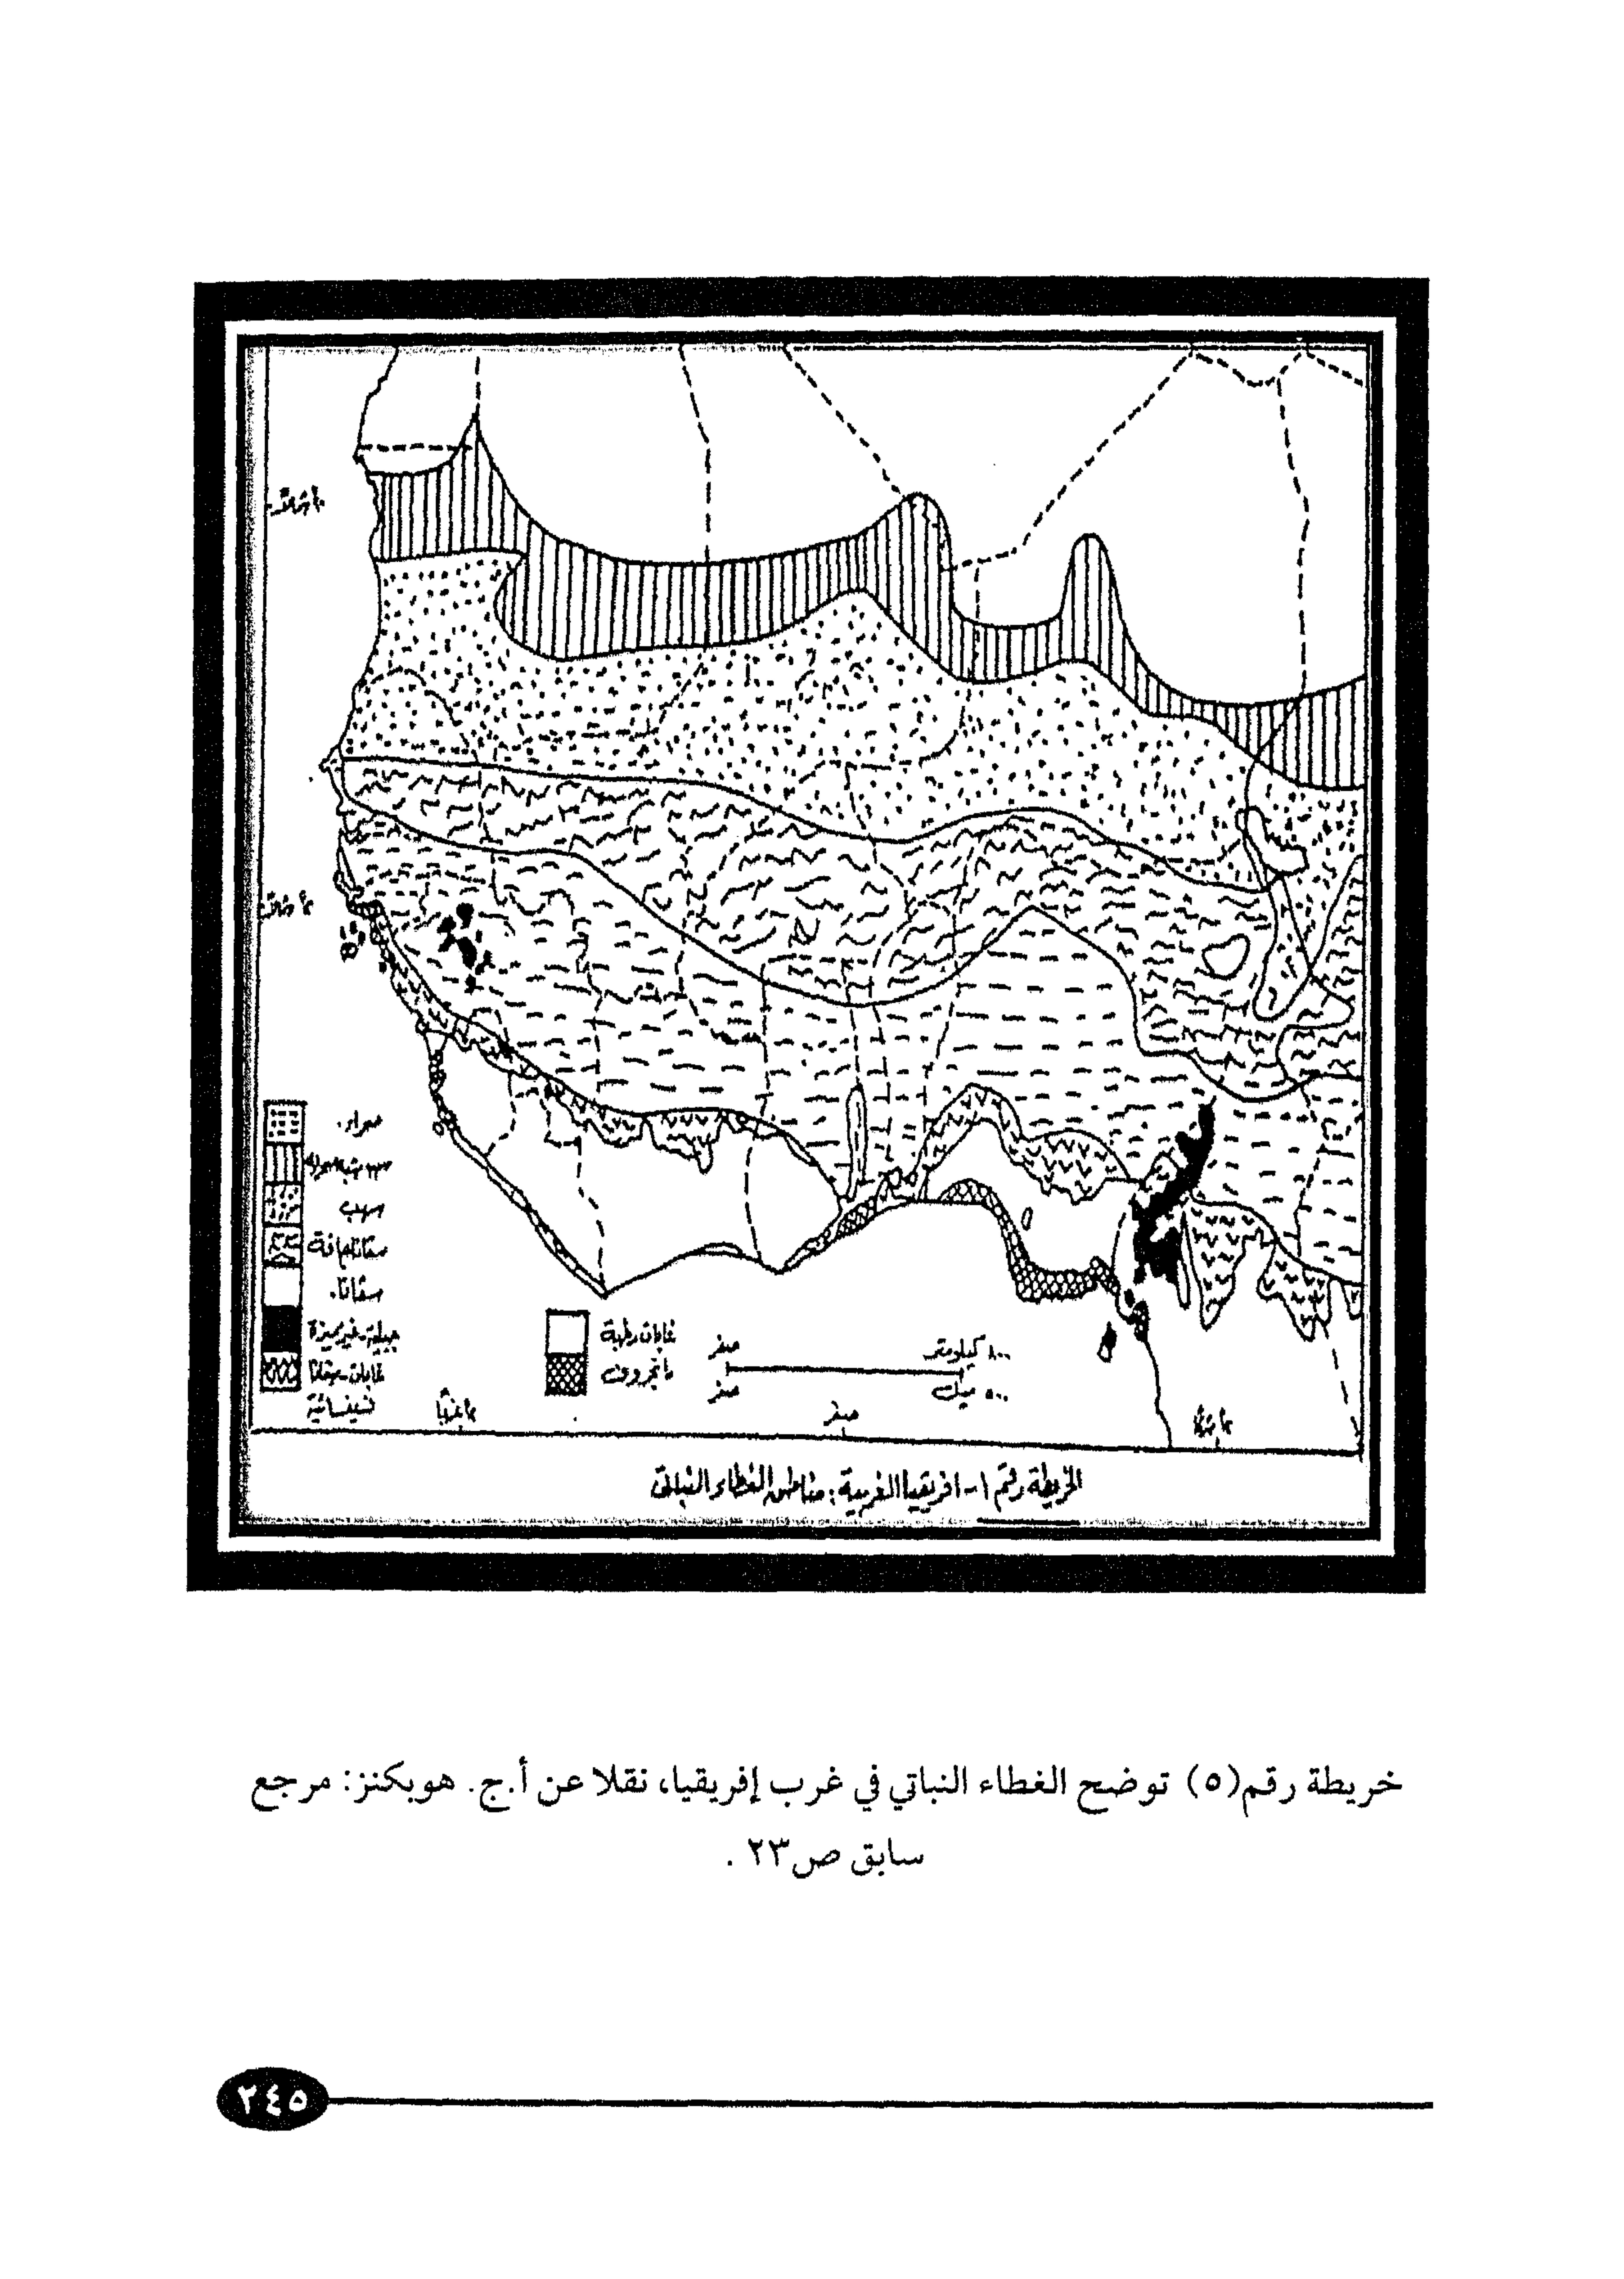 صحراء.
سهب
سڤانا جافة
سڤانا.
جبلية-غير مميزة
غابات-سڤانا
غابات رطبة
مانجروف
صفر
٨٠٠ كيلومتر
صفر
٥٠٠ ميل
صفر
الخريطة رقم ١- افريقيا الغربية: مناطق الغطاء النباتي
خريطة رقم(٥) توضح الغطاء النباتي في غرب إفريقيا، نقلا عن أ.ج. هوبكنز: مرجع
سابق ص٢٣ .
٢٤٥